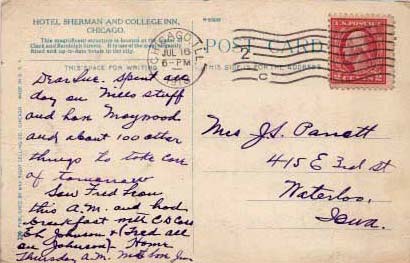 HOTEL SHERMAN AND COLLEGE INN,
CHICAGO.
This magnificent structure is located at the
Clark and Randolph Streets. It is one of the most elegantly
fitted and up-to-date hotels in the city.
THIS SPACE FOR WRITING
POST CARD
THIS SIDE IS FOR THE ADDRESS
CHICAGO, ILL.
JUL 16
6-PM
2
C
Dear Sue. Spent all
day on Mills stuff
and have Maywood
and about 100 other
things to take care
of tomorrow
Saw Fred
this A.M. and had
breakfast with C D Care
Johnson + (Fred all
on Johnson) - Home
Thursday A.M.
Mrs J.S. Parrott
415 E 3rd St
Waterloo,
Iowa.